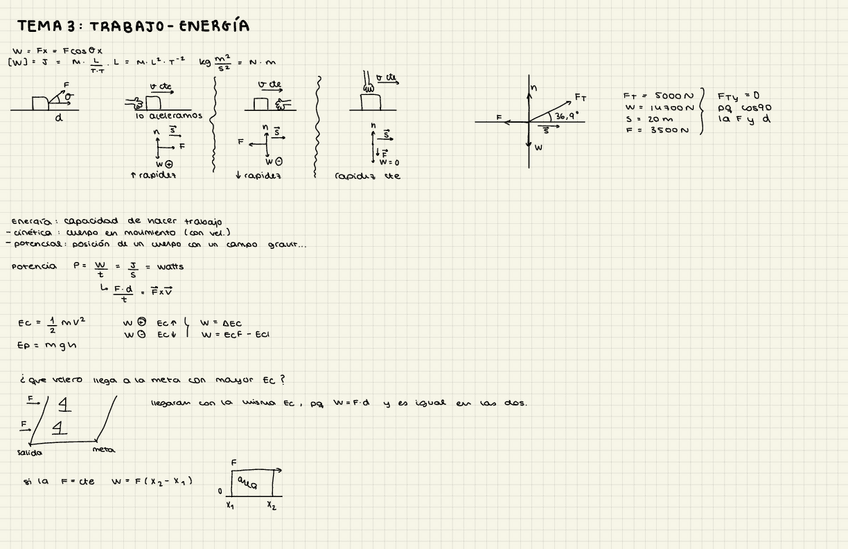 TEMA 3: TRABAJO-ENERGÍA
W = Fx = Fcosθx
[W] = J = M · L/T·T · L = M·L²·T⁻² kg m²/s² = N·m
F
θ
d
v cte
lo aceleramos
n
s
F
W ⊕
↑ rapidez
v cte
n
s
F
W ⊖
↓ rapidez
v cte
n
s
F
W=0
rapidez cte
n
FT
F
36,9°
s
W
FT = 5000N
W = 14700N
S = 20m
F = 3500N
FTy = 0
pq cos90
la F y d
Energía: capacidad de hacer trabajo
- cinética: cuerpo en movimiento (con vel.)
- potencial: posición de un cuerpo con un campo gravit...
Potencia P = W/t = J/s = watts
↳ F·d/t = F⃗xV⃗
Ec = 1/2 mv² W ⊕ Ec↑ W = ΔEc
W ⊖ Ec↓ W = ecF - Eci
Ep = mgh
¿que velero llega a la meta con mayor Ec?
F
F
salida
meta
llegaran con la misma Ec, pq W=F·d y es igual en las dos.
si la F=cte W = F(x₂-x₁)
F
área
0
x₁ x₂